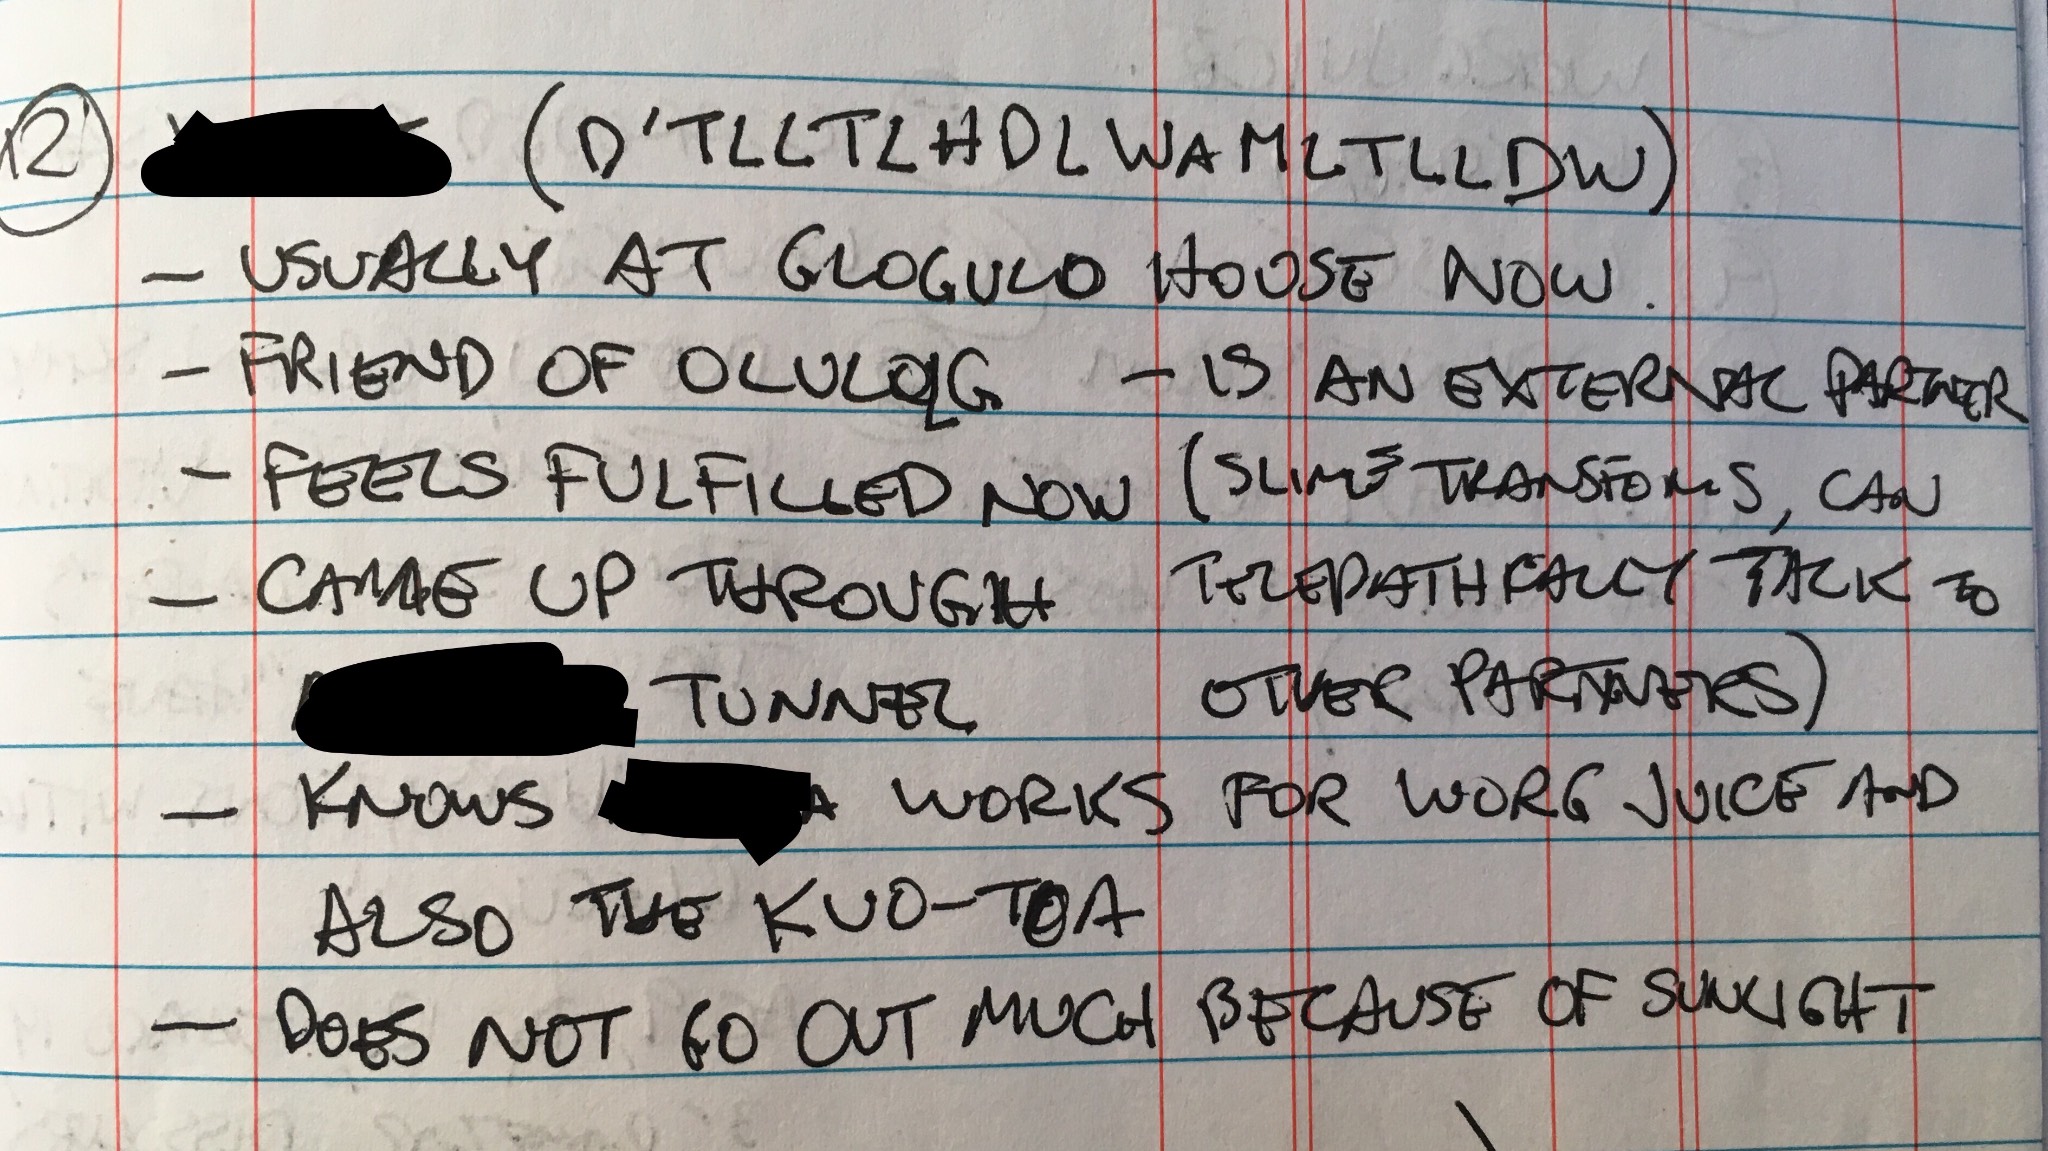 12 (D'TLLTLHDLWAMLTLLDW)
- USUALLY AT GLOGULO HOUSE NOW.
- FRIEND OF OLULOQG - IS AN EXTERNAL PARTNER
- FEELS FULFILLED NOW (SLIME TRANSFOMS, CAN
- CAME UP THROUGH TELEPATHICALLY TALK TO
TUNNEL OTHER PARTNERS)
- KNOWS WORKS FOR WORG JUICE AND
ALSO THE KUO-TOA
- DOES NOT GO OUT MUCH BECAUSE OF SUNLIGHT